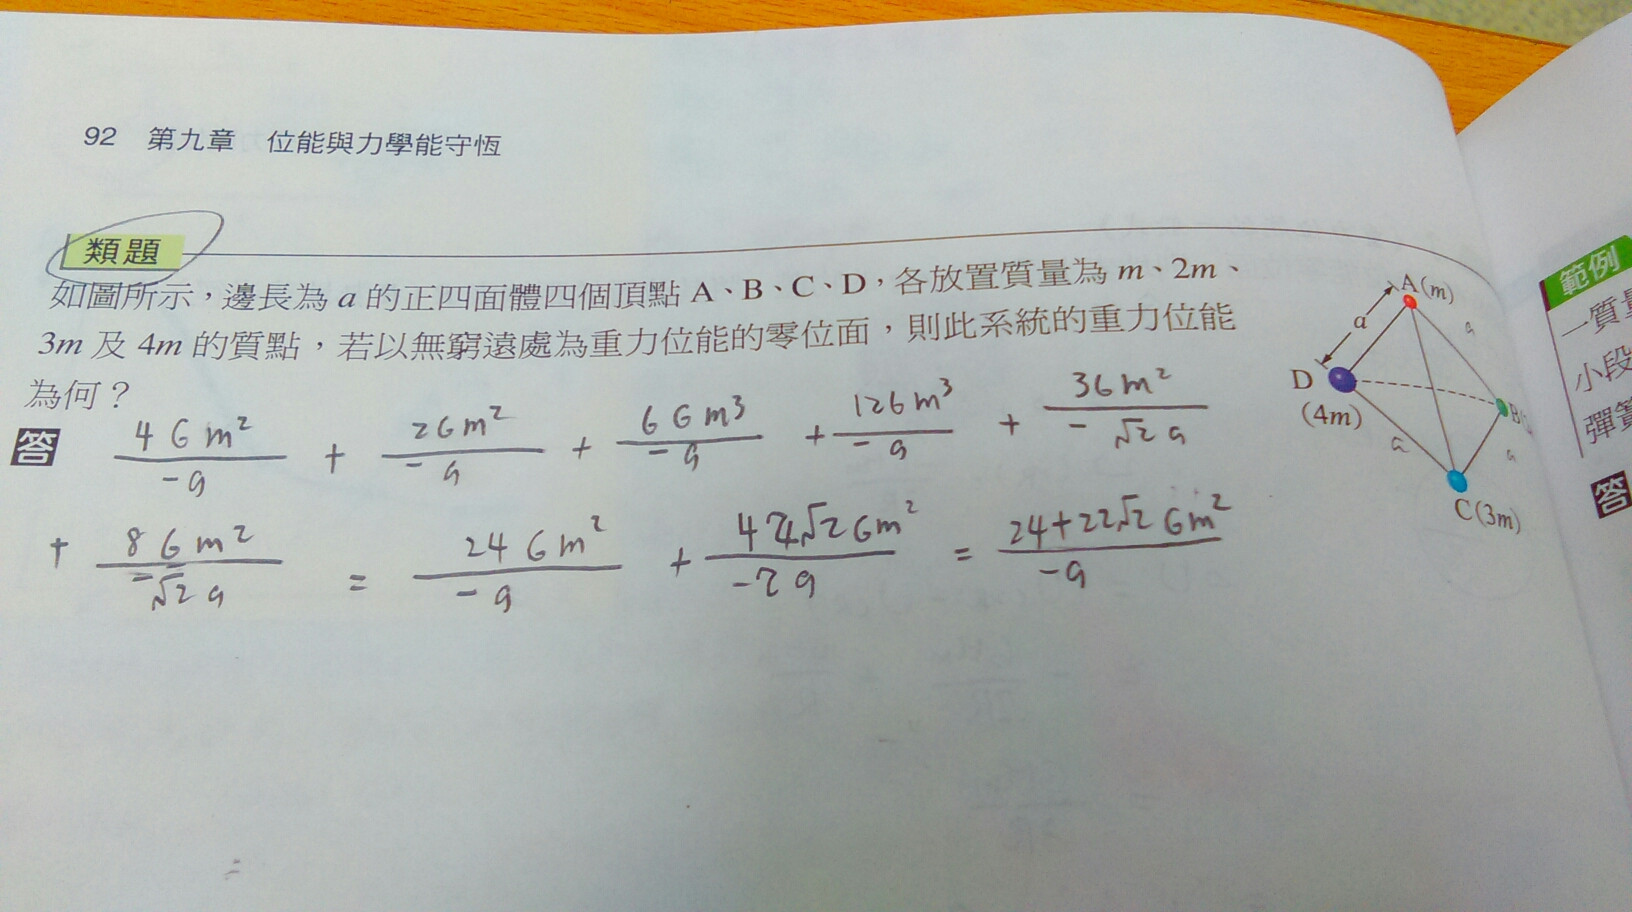 92 第九章 位能與力學能守恆
類題
如圖所示,邊長為 a 的正四面體四個頂點 A、B、C、D,各放置質量為 m、2m、
3m 及 4m 的質點,若以無窮遠處為重力位能的零位面,則此系統的重力位能
為何?
答 4Gm²/-a + 2Gm²/-a + 6Gm³/-a + 12Gm³/-a + 3Gm²/-√2a
+ 8Gm²/-√2a = 24Gm²/-a + √2Gm²/-2a = 24+22√2Gm²/-a
A(m)
a
a
D
(4m)
B
a
a
C(3m)
範例
一質量
小段
彈簧
答